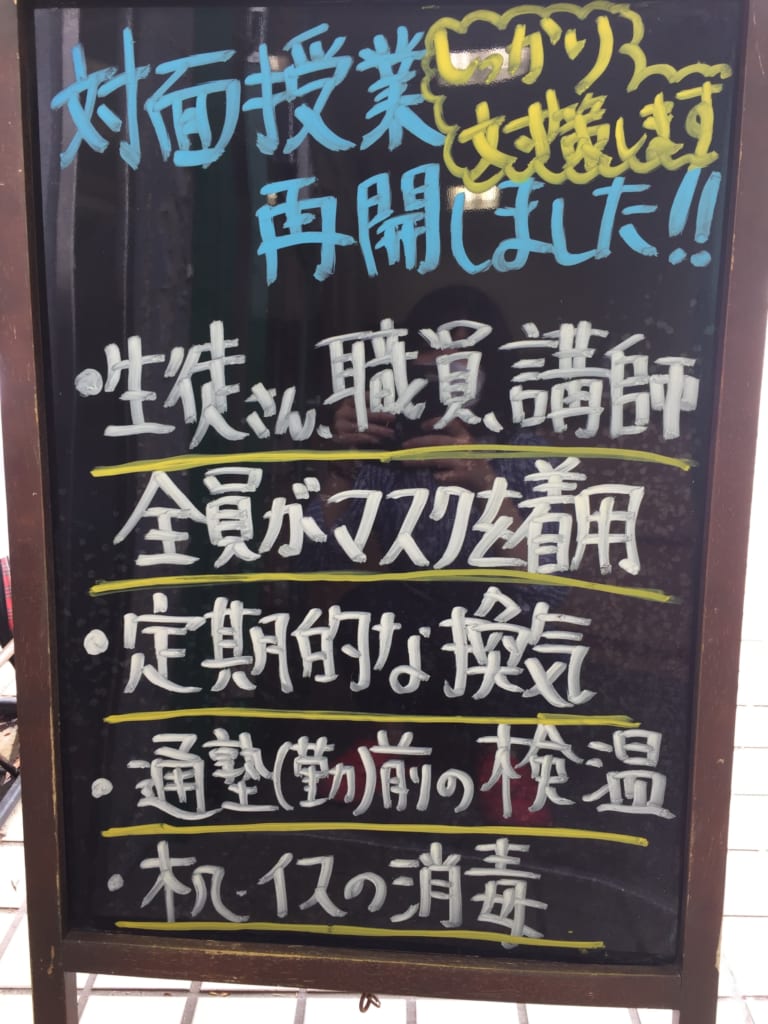 対面授業
しっかり
対策します
再開しました!!
・生徒さん、職員、講師
全員がマスクを着用
・定期的な換気
・通塾(勤)前の検温
・机・イスの消毒